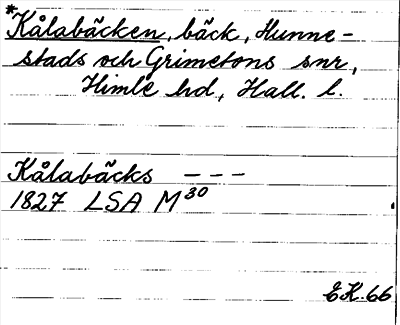 *Kålabäcken, bäck, Hunne-
stads och Grimetons snr,
Himle hd, Hall. l.
Kålabäcks ---
1827 LSA M30
EK. 66